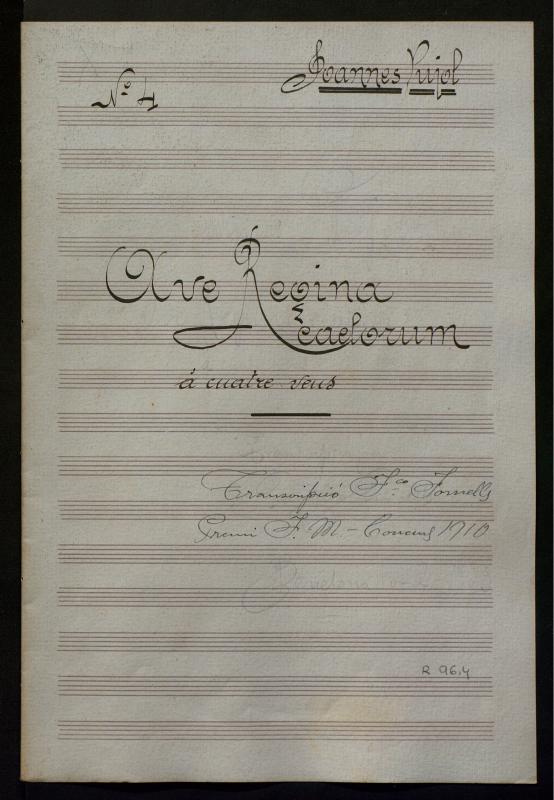 Joannes Pujol
Nº 4
Ave Regina
caelorum
á cuatre veus
Transcripció Fco. Tornells
Premi F. M. - Concurs 1910
R 96,4